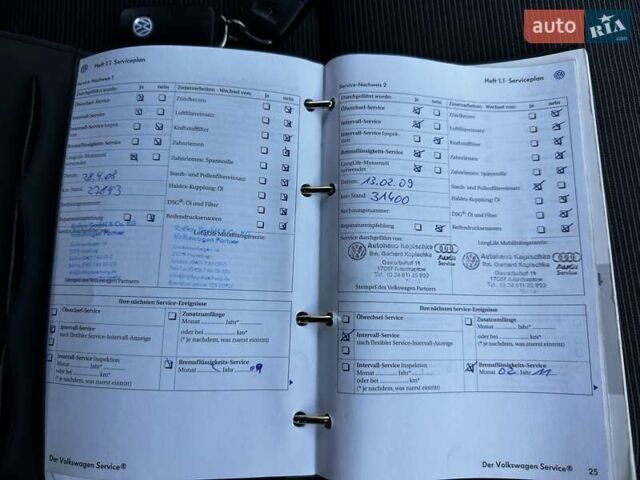 auto RIA
.com
Heft 1.1 Serviceplan
Service-Nachweis 1
Durchgeführt wurde: ja nein
Zusatzarbeiten - Wechsel von: ja nein
Ölwechsel-Service
Zündkerzen
Intervall-Service
Luftfiltereinsatz
Intervall-Service Inspektion
Kraftstofffilter
Bremsflüssigkeits-Service
Zahnriemen
LongLife-Motorenöl verwendet
Zahnriemen: Spannrolle
Datum: 28.4.08
Staub- und Pollenfiltereinsatz
km-Stand: 27843
Haldex-Kupplung: Öl
Rechnungsnummer:
DSG®: Öl und Filter
Reparaturempfehlung
Reifendrucksensoren
Service durchgeführt von:
LongLife Mobilitätsgarantie:
Volkswagen Partner
Stempel des Volkswagen Partners
Ihre nächsten Service-Ereignisse
Ölwechsel-Service
Zusatzumfänge
Monat Jahr*
oder bei km*
(* je nachdem, was zuerst eintritt)
Intervall-Service
nach flexibler Service-Intervall-Anzeige
Intervall-Service Inspektion
Monat Jahr*
oder bei km*
(* je nachdem, was zuerst eintritt)
Bremsflüssigkeits-Service
Monat Jahr 09
Der Volkswagen Service®
Service-Nachweis 2
Heft 1.1 Serviceplan
Durchgeführt wurde: ja nein
Zusatzarbeiten - Wechsel von: ja nein
Ölwechsel-Service
Zündkerzen
Intervall-Service
Luftfiltereinsatz
Intervall-Service Inspektion
Kraftstofffilter
Bremsflüssigkeits-Service
Zahnriemen
LongLife-Motorenöl verwendet
Zahnriemen: Spannrolle
Datum: 13.02.09
Staub- und Pollenfiltereinsatz
km-Stand: 31400
Haldex-Kupplung: Öl
Rechnungsnummer:
DSG®: Öl und Filter
Reparaturempfehlung
Reifendrucksensoren
Service durchgeführt von:
LongLife Mobilitätsgarantie:
Autohaus Kapischke
Inh. Gerhard Kapischke
Audi Service
Stempel des Volkswagen Partners
Ihre nächsten Service-Ereignisse
Ölwechsel-Service
Zusatzumfänge
Monat Jahr*
oder bei km*
(* je nachdem, was zuerst eintritt)
Intervall-Service
nach flexibler Service-Intervall-Anzeige
Intervall-Service Inspektion
Monat Jahr*
oder bei km*
(* je nachdem, was zuerst eintritt)
Bremsflüssigkeits-Service
Monat 02 Jahr 11
Der Volkswagen Service®
25